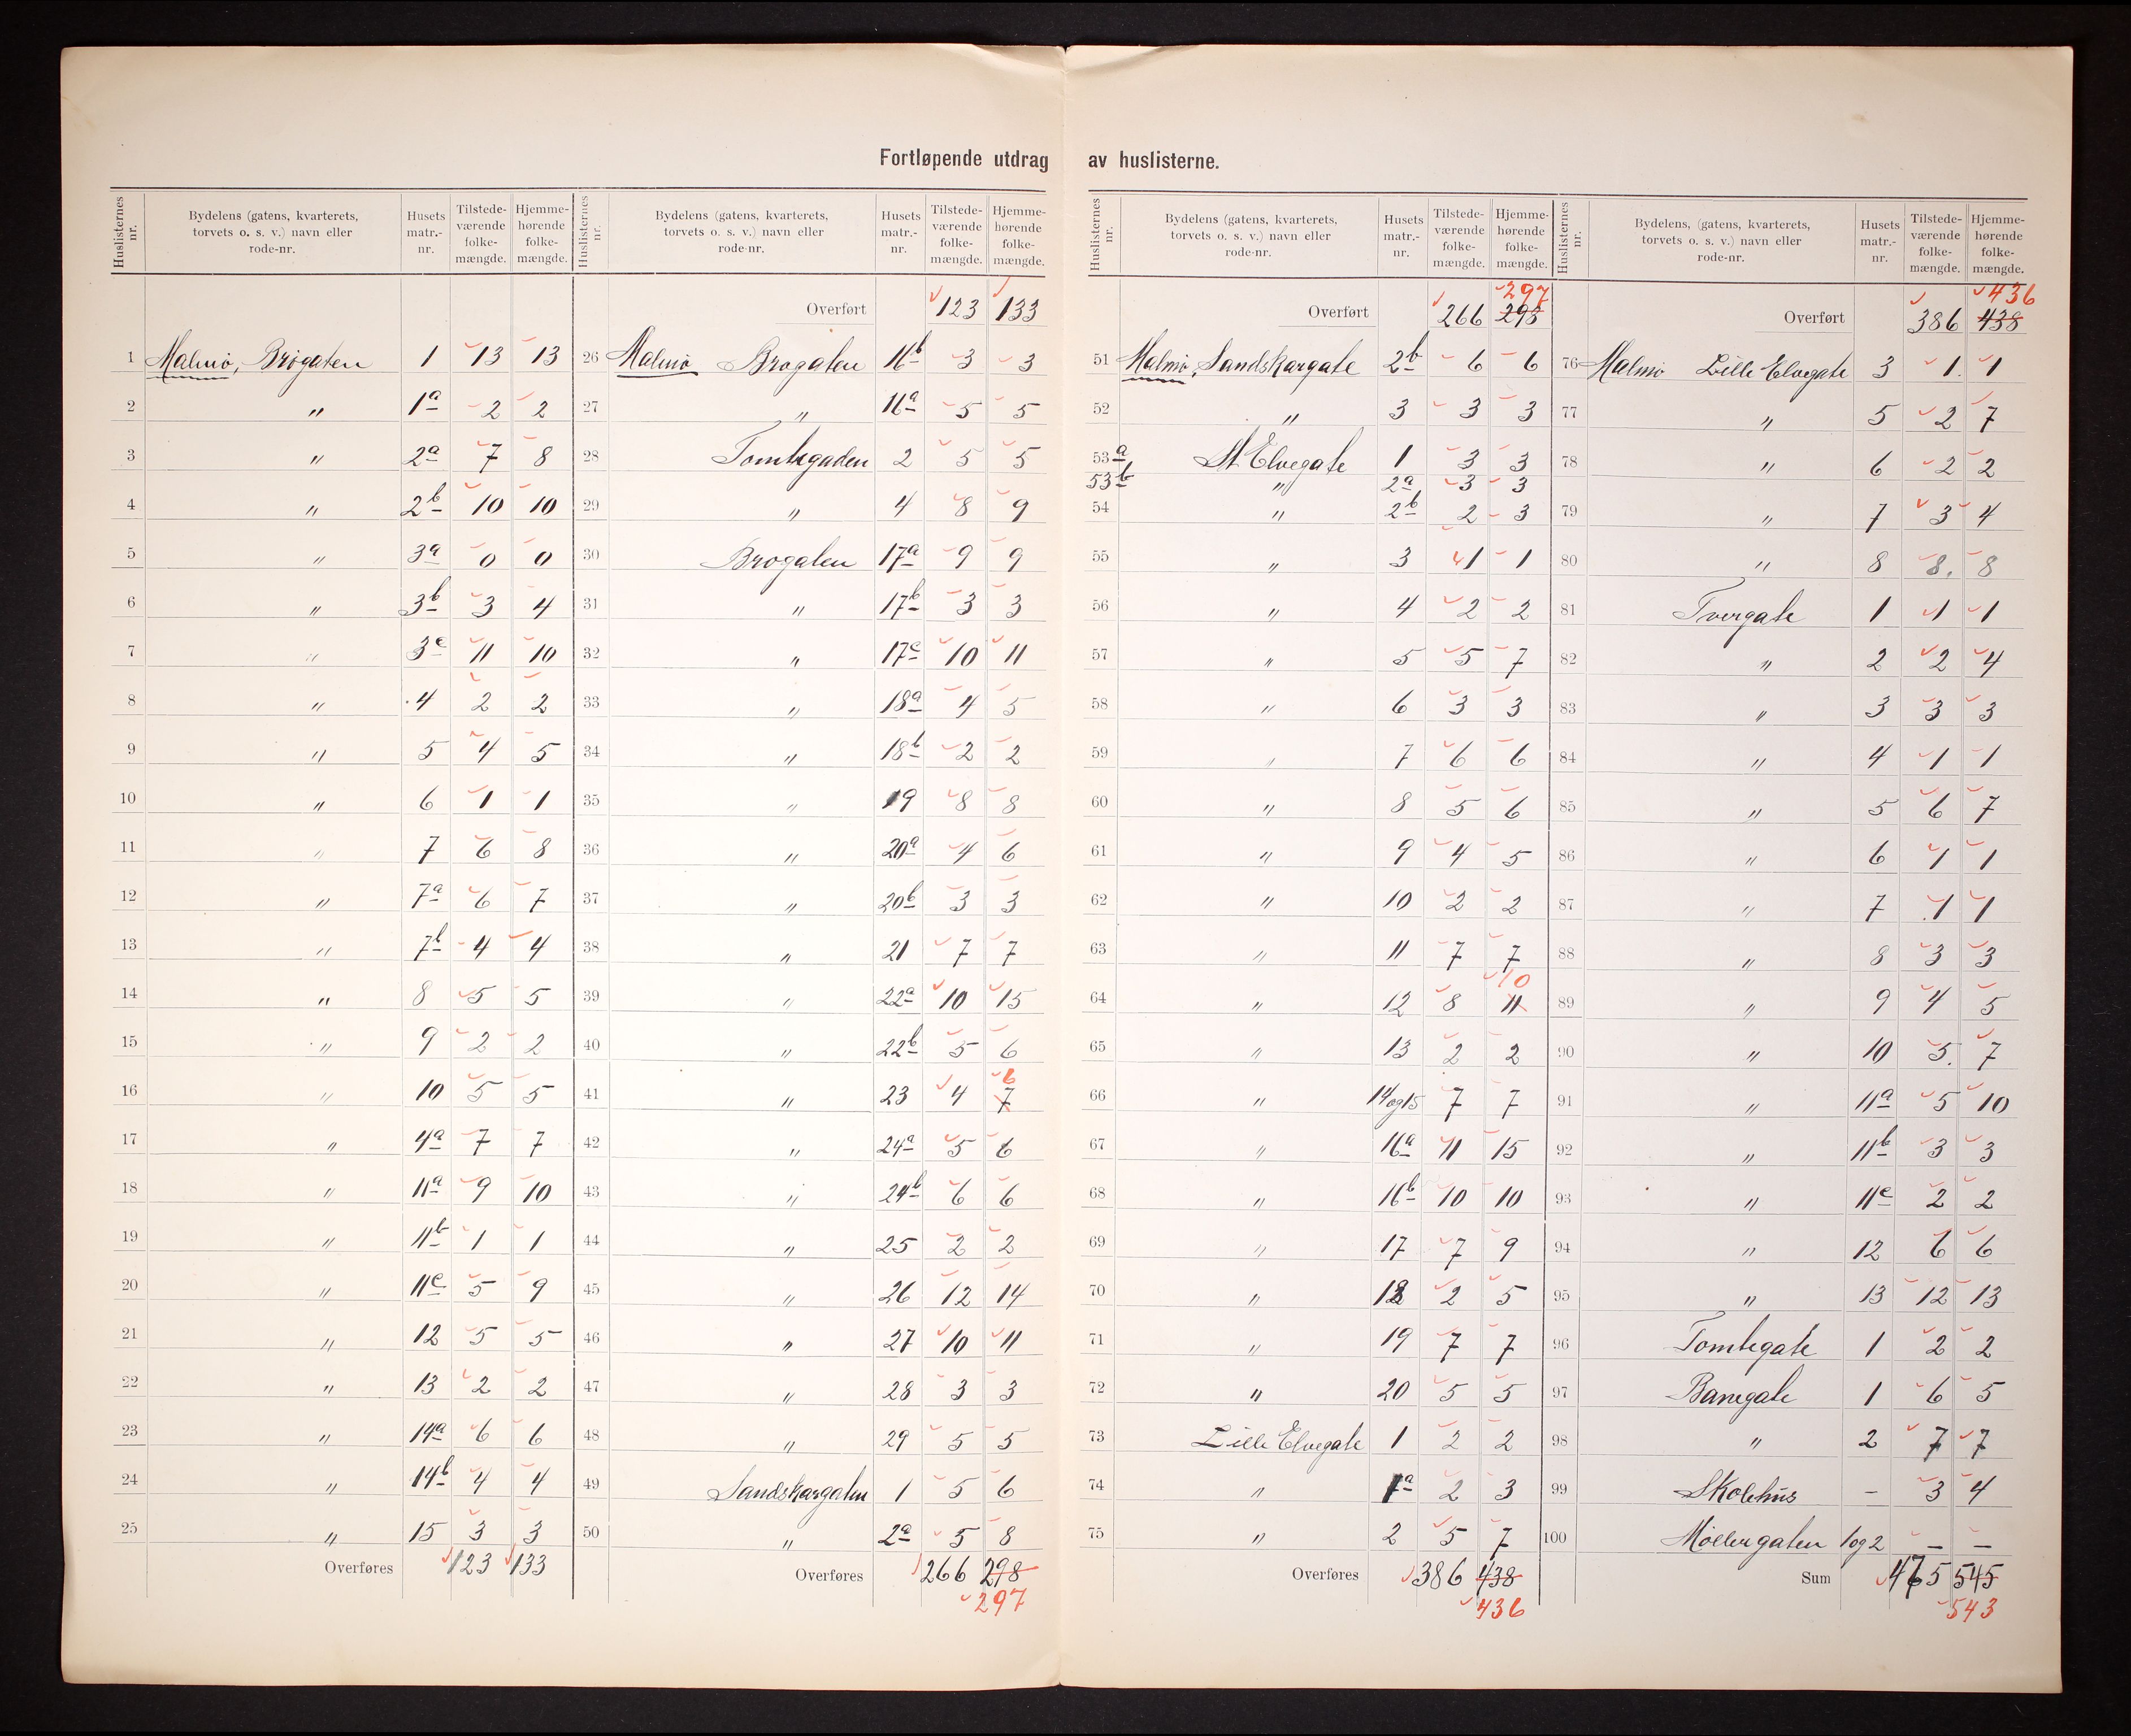 Fortløpende utdrag av huslisterne.
Huslisternes nr. | Bydelens (gatens, kvarterets, torvets o. s. v.) navn eller rode-nr. | Husets matr.-nr. | Tilstedeværende folkemængde. | Hjemmehørende folkemængde.
1 Malmö, Brogaten 1 13 13
2 " 1a 2 2
3 " 2a 7 8
4 " 2b 10 10
5 " 3a 0 0
6 " 3b 3 4
7 " 3c 11 10
8 " 4 2 2
9 " 5 4 5
10 " 6 1 1
11 " 7 6 8
12 " 7a 6 7
13 " 7b 4 4
14 " 8 5 5
15 " 9 2 2
16 " 10 5 5
17 " 4a 7 7
18 " 11a 9 10
19 " 11b 1 1
20 " 11c 5 9
21 " 12 5 5
22 " 13 2 2
23 " 14a 6 6
24 " 14b 4 4
25 " 15 3 3
Overføres 123 133
Huslisternes nr. | Bydelens (gatens, kvarterets, torvets o. s. v.) navn eller rode-nr. | Husets matr.-nr. | Tilstedeværende folkemængde. | Hjemmehørende folkemængde.
Overført 123 133
26 Malmö Brogaten 16b 3 3
27 " 16a 5 5
28 Tomtegaden 2 5 5
29 " 4 8 9
30 Brogaten 17a 9 9
31 " 17b 3 3
32 " 17c 10 11
33 " 18a 4 5
34 " 18b 2 2
35 " 19 8 8
36 " 20a 4 6
37 " 20b 3 3
38 " 21 7 7
39 " 22a 10 15
40 " 22b 5 6
41 " 23 4 7 6
42 " 24a 5 6
43 " 24b 6 6
44 " 25 2 2
45 " 26 12 14
46 " 27 10 11
47 " 28 3 3
48 " 29 5 5
49 Sandskargaten 1 5 6
50 " 2a 5 8
Overføres 266 298
297
Huslisternes nr. | Bydelens (gatens, kvarterets, torvets o. s. v.) navn eller rode-nr. | Husets matr.-nr. | Tilstedeværende folkemængde. | Hjemmehørende folkemængde.
297
Overført 266 298
51 Malmö, Sandskargate 2b 6 6
52 " 3 3 3
53a St Elvegate 1 3 3
53b " 2a 3 3
54 " 2b 2 3
55 " 3 1 1
56 " 4 2 2
57 " 5 5 7
58 " 6 3 3
59 " 7 6 6
60 " 8 5 6
61 " 9 4 5
62 " 10 2 2
63 " 11 7 7
64 " 12 8 11 10
65 " 13 2 2
66 " 14og15 7 7
67 " 16a 11 15
68 " 16b 10 10
69 " 17 7 9
70 " 18 2 5
71 " 19 7 7
72 " 20 5 5
73 Lille Elvegate 1 2 2
74 " 1a 2 3
75 " 2 5 7
Overføres 386 438
436
Huslisternes nr. | Bydelens, (gatens, kvarterets, torvets o. s. v.) navn eller rode-nr. | Husets matr.-nr. | Tilstedeværende folkemængde. | Hjemmehørende folkemængde.
436
Overført 386 438
76 Malmö Lille Elvegate 3 1 1
77 " 5 2 7
78 " 6 2 2
79 " 7 3 4
80 " 8 8 8
81 Tvergate 1 1 1
82 " 2 2 4
83 " 3 3 3
84 " 4 1 1
85 " 5 6 7
86 " 6 1 1
87 " 7 1 1
88 " 8 3 3
89 " 9 4 5
90 " 10 5 7
91 " 11a 5 10
92 " 11b 3 3
93 " 11c 2 2
94 " 12 6 6
95 " 13 12 13
96 Tomtegate 1 2 2
97 Banegate 1 6 5
98 " 2 7 7
99 Skolehus – 3 4
100 Møllergaten 1og2 – –
Sum 475 545
543